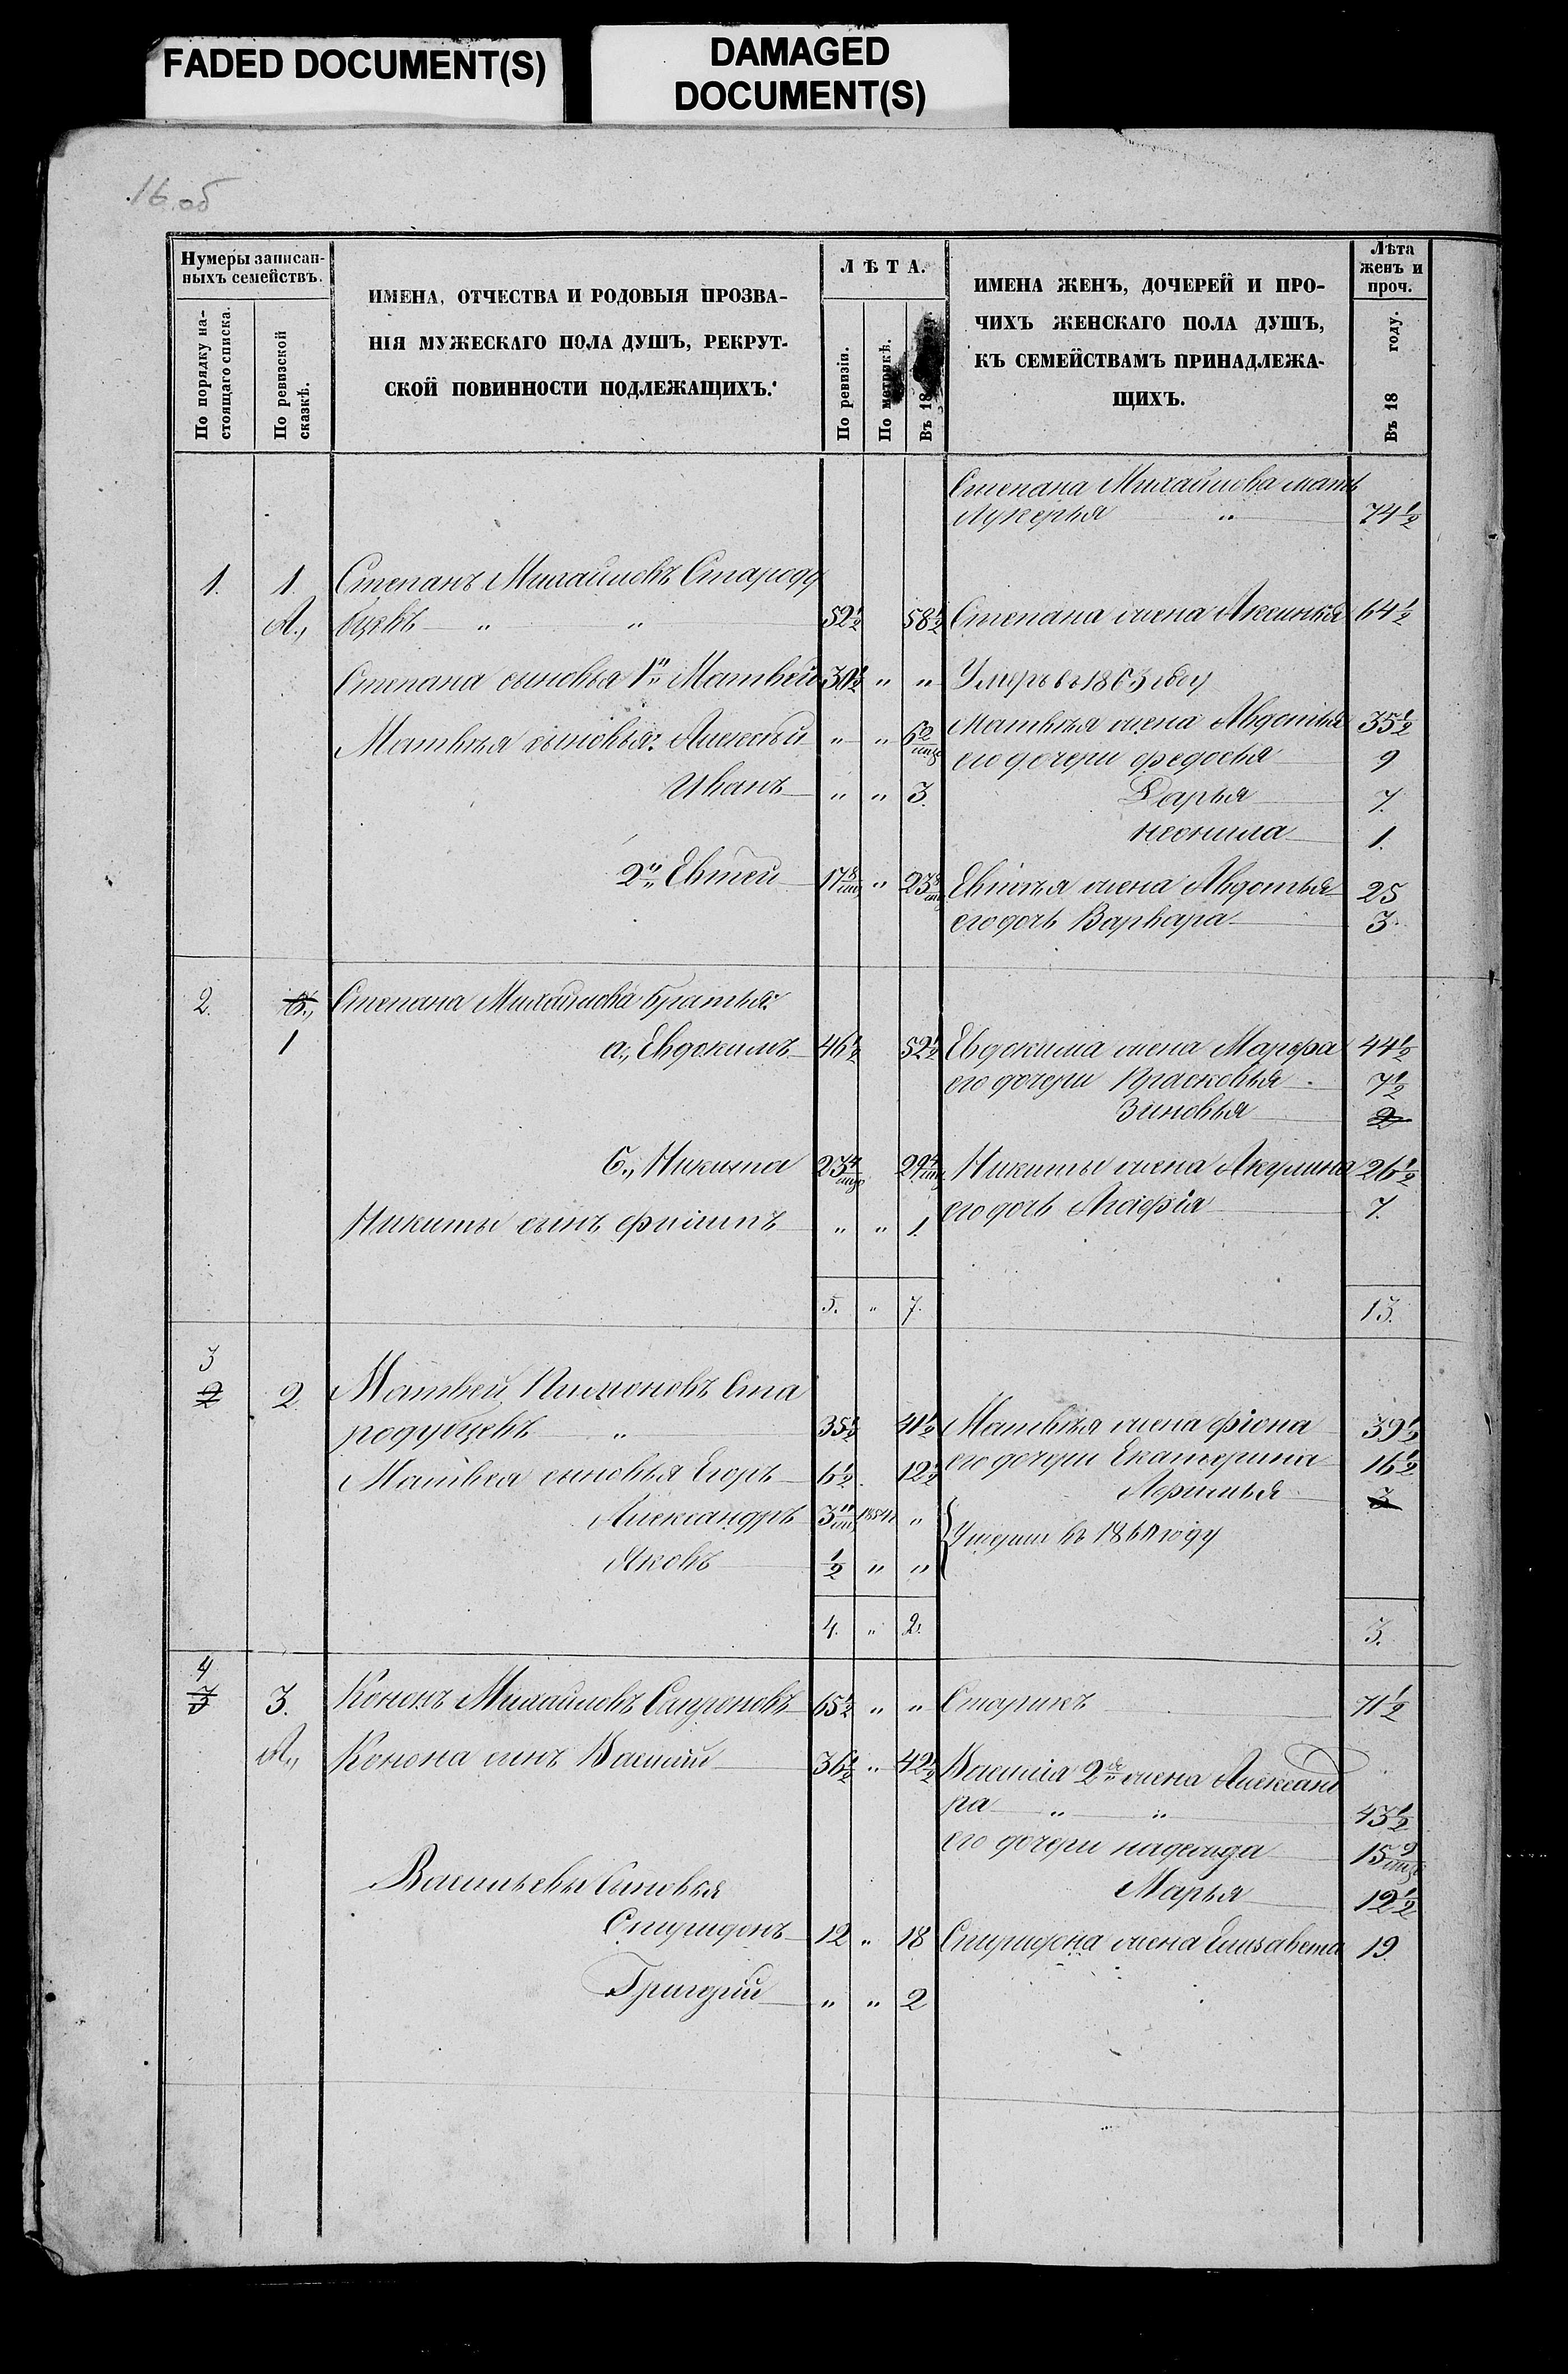 FADED DOCUMENT(S)
DAMAGED
DOCUMENT(S)
16 об
Нумеры записан-
ныхъ семействъ.
По порядку на-
стоящаго списка.
По ревизской
сказкѣ.
ИМЕНА, ОТЧЕСТВА И РОДОВЫЯ ПРОЗВА-
НІЯ МУЖЕСКАГО ПОЛА ДУШЪ, РЕКРУТ-
СКОЙ ПОВИННОСТИ ПОДЛЕЖАЩИХЪ.
ЛѢТА.
По ревизіи.
По метрикѣ.
Въ 18
ИМЕНА ЖЕНЪ, ДОЧЕРЕЙ И ПРО-
ЧИХЪ ЖЕНСКАГО ПОЛА ДУШЪ,
КЪ СЕМЕЙСТВАМЪ ПРИНАДЛЕЖА-
ЩИХЪ.
Лѣта
женъ и
проч.
Въ 18 году.
Степана Михайлова мать
Лукерья " 74½
1. 1. Степанъ Михайловъ Староду
А., бцевъ " " 52½ 58½ Степана жена Аксинья 64½
Степана сыновья 1й Матвей 30½ " " Умеръ въ 1863 году
Матвѣя сыновья: Алексѣй " " 6 2/мц Матвѣя жена Авдотья 35½
его дочери Федосья 9
Иванъ " " 3. Дарья 7.
Неонила 1.
2й Евтей 17 8/мц " 23 8/мц Евтѣя жена Авдотья 25
его дочь Варвара 3.
2. Степана Михайлова братья:
1 а., Евдокимъ 46½ 52½ Евдокима жена Марфа 44½
его дочери Прасковья 7½
Зиновья 2
б., Никита 23 4/мц 29 4/мц Никиты жена Акулина 26½
его дочь Агафія 7.
Никиты сынъ Филипъ " " 1.
5. " 7. 13.
3
2 2. Матвей Пимоновъ Ста
родубцевъ " 35½ 41½ Матвѣя жена Фіона 39½
Матвея сыновья Егоръ 6½ 12½ его дочери Екатерина 16½
3
Александръ 3 11/мц 1854 "
Яковъ ½ " "
4. " 2. 3.
4
3 3. Кононъ Михайловъ 65½ " " Старикъ 71½
А., Конона сынъ Василій 36½ " 42½ Василія 2я жена Александ
ра " " 43½
его дочери надежда 15 9/мц
Васильевы Сыновья Марья 12½
Спиридонъ 12 " 18 Спиридона жена Елизавета 19
Григорій " " 2